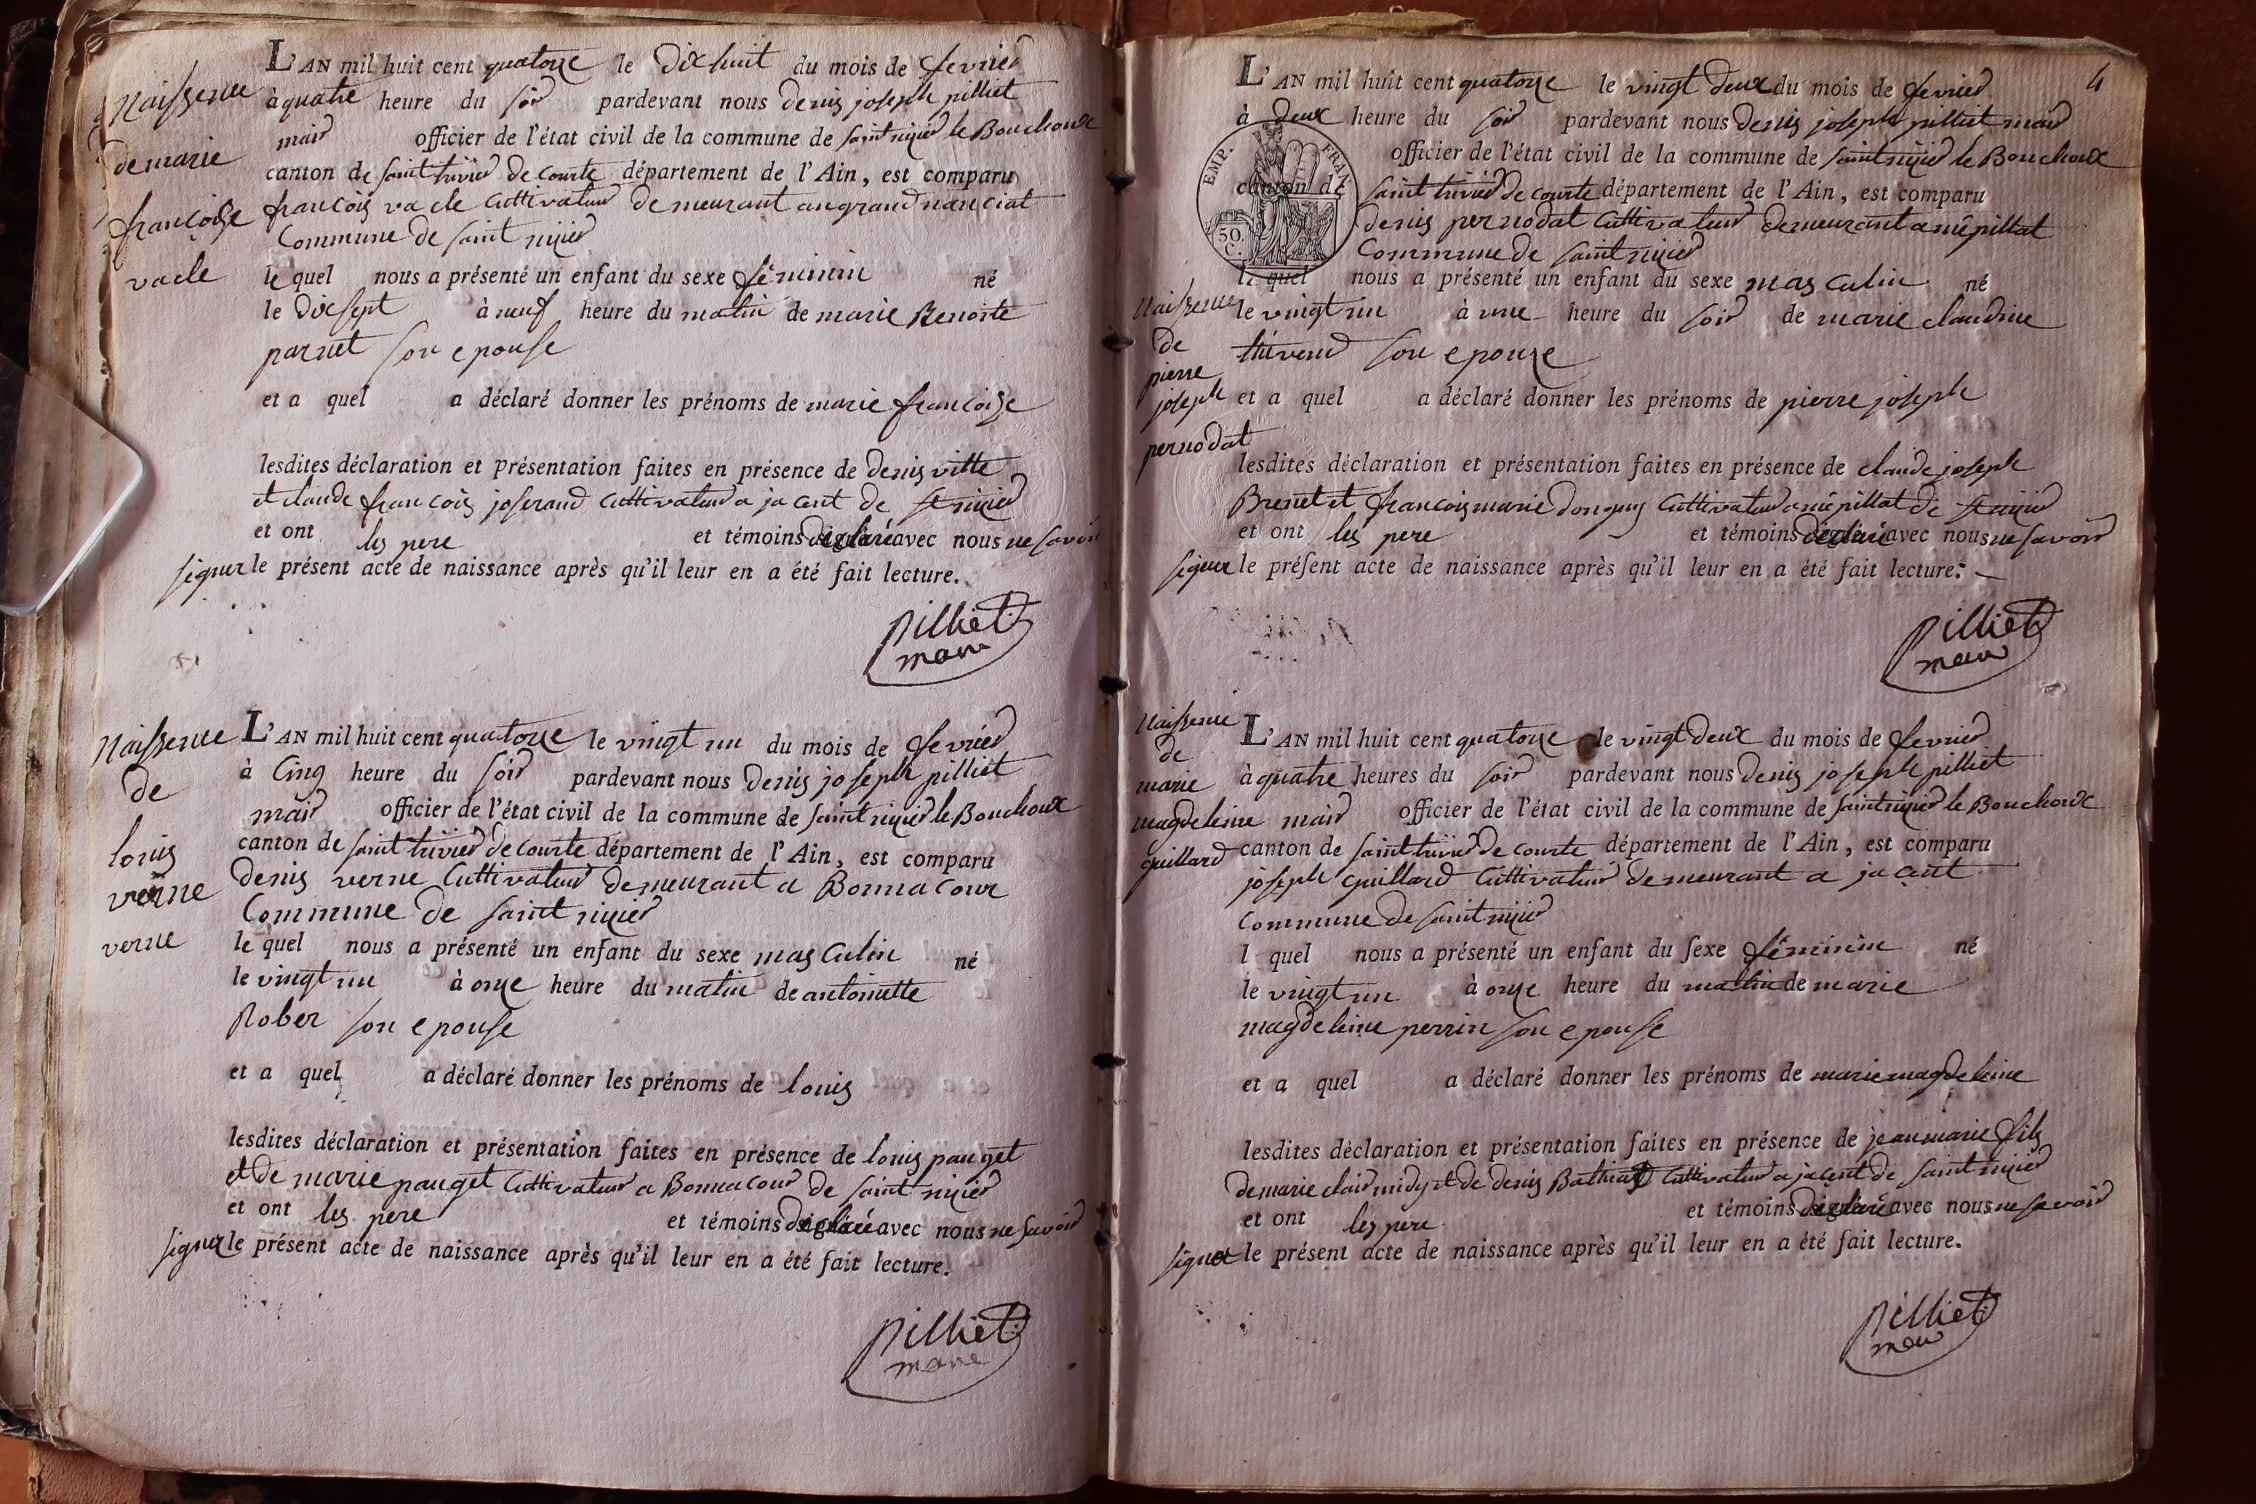 L'AN mil huit cent quatorze le dix huit du mois de fevrier
Naissence
de marie
françoise
vacle
à quatre heure du soir pardevant nous denis joseph pilliet
mair officier de l'état civil de la commune de saint nizier le Bouchoux
canton de saint trivier de courte département de l'Ain, est comparu
francois vacle cultivateur demeurant au grand nanciat
Commune de saint nizier
le quel nous a présenté un enfant du sexe féminin né
le dix sept à neuf heure du matin de marie Benoite
parnet son epouse
et a quel a déclaré donner les prénoms de marie françoise
lesdites déclaration et présentation faites en présence de denis vitte
et claude francois joserand cultivateur a jacent de st nizier
et ont les pere et témoins déclaré avec nous ne savoir
signer le présent acte de naissance après qu'il leur en a été fait lecture.
Pilliet
maire
Naissence
de
louis
verne
verne
L'AN mil huit cent quatorze le vingt un du mois de fevrier
à cinq heure du soir pardevant nous denis joseph pilliet
mair officier de l'état civil de la commune de saint nizier le Bouchoux
canton de saint trivier de courte département de l'Ain, est comparu
denis verne cultivateur demeurant a Bonnacour
Commune de saint nizier
le quel nous a présenté un enfant du sexe masculin né
le vingt un à onze heure du matin de antoinette
Rober son epouse
et a quel a déclaré donner les prénoms de louis
lesdites déclaration et présentation faites en présence de louis pauget
et de marie pauget cultivateur a Bonnacour de saint nizier
et ont les pere et témoins déclaré avec nous ne savoir
signer le présent acte de naissance après qu'il leur en a été fait lecture.
Pilliet
maire
4
L'AN mil huit cent quatorze le vingt deux du mois de fevrier
à deux heure du soir pardevant nous denis joseph pilliet mair
officier de l'état civil de la commune de saint nizier le Bouchoux
canton de saint trivier de courte département de l'Ain, est comparu
EMP. FRAN.
50
C.
denis pernodat cultivateur demeurant a mépillat
Commune de saint nizier
le quel nous a présenté un enfant du sexe masculin né
Naissence
de
pierre
joseph
pernodat
le vingt un à une heure du soir de marie claudine
thévend son epouze
et a quel a déclaré donner les prénoms de pierre joseph
lesdites déclaration et présentation faites en présence de claude joseph
Brenet et francois marie donguy cultivateur a mépillat de st nizier
et ont les pere et témoins déclaré avec nous ne savoir
signer le présent acte de naissance après qu'il leur en a été fait lecture.
Pilliet
maire
Naissence
de
marie
magdeleine
guillard
L'AN mil huit cent quatorze le vingt deux du mois de fevrier
à quatre heures du soir pardevant nous denis joseph pilliet
mair officier de l'état civil de la commune de saint nizier le Bouchoux
canton de saint trivier de courte département de l'Ain, est comparu
joseph guillard cultivateur demeurant a jacent
Commune de saint nizier
l quel nous a présenté un enfant du sexe féminin né
le vingt un à onze heure du matin de marie
magdeleine perrin son epouse
et a quel a déclaré donner les prénoms de marie magdeleine
lesdites déclaration et présentation faites en présence de jean marie fils
de marie clair midy et de denis cultivateur a jacent de saint nizier
et ont les pere et témoins déclaré avec nous ne savoir
signer le présent acte de naissance après qu'il leur en a été fait lecture.
Pilliet
maire